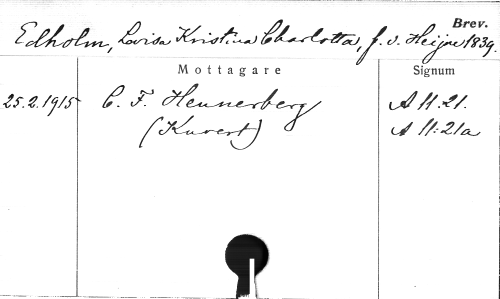 Brev.
Edholm, Lovisa Kristina Charlotta, f. v. Heijne 1839.
Mottagare Signum
25.2.1915 C. F. Hennerberg A 11.21.
(Kuvert) A 11:21a